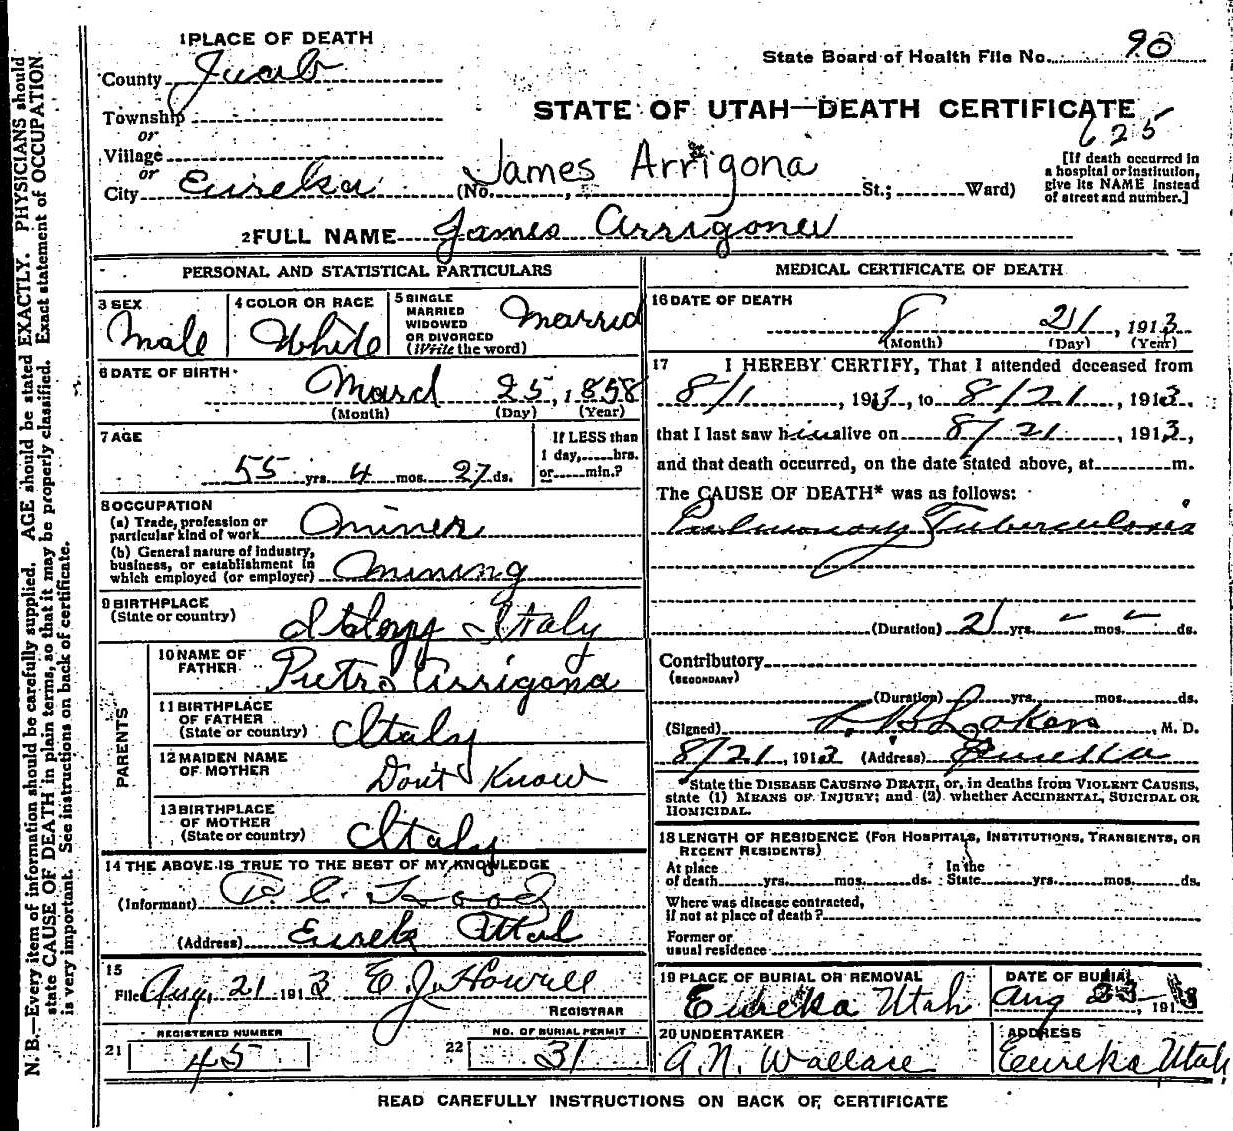 1 PLACE OF DEATH
County Juab
State Board of Health File No. 90
Township
STATE OF UTAH—DEATH CERTIFICATE
625
or
Village
or
City Eureka (No. James Arrigona St.; Ward)
[If death occurred in
a hospital or institution,
give its NAME instead
of street and number.]
2 FULL NAME James Arrigona
PERSONAL AND STATISTICAL PARTICULARS
3 SEX
Male
4 COLOR OR RACE
White
5 SINGLE
MARRIED
WIDOWED
OR DIVORCED
(Write the word)
Married
6 DATE OF BIRTH
March 25, 1858
(Month) (Day) (Year)
7 AGE
55 yrs. 4 mos. 27 ds.
If LESS than
1 day,.....hrs.
or......min.?
8 OCCUPATION
(a) Trade, profession or
particular kind of work Miner
(b) General nature of industry,
business, or establishment in
which employed (or employer) Mining
9 BIRTHPLACE
(State or country) Italy Italy
PARENTS
10 NAME OF
FATHER Pietro Arrigona
11 BIRTHPLACE
OF FATHER
(State or country) Italy
12 MAIDEN NAME
OF MOTHER Don't Know
13 BIRTHPLACE
OF MOTHER
(State or country) Italy
14 THE ABOVE IS TRUE TO THE BEST OF MY KNOWLEDGE
(Informant)
(Address) Eureka Utah
15
Filed Aug. 21 1913 E. J. Howell
REGISTRAR
REGISTERED NUMBER
21 45
NO. OF BURIAL PERMIT
22 31
MEDICAL CERTIFICATE OF DEATH
16 DATE OF DEATH
8 21, 1913
(Month) (Day) (Year)
17 I HEREBY CERTIFY, That I attended deceased from
8/1, 1913, to 8/21, 1913,
that I last saw him alive on 8/21, 1913,
and that death occurred, on the date stated above, at m.
The CAUSE OF DEATH* was as follows:
Pulmonary Tuberculosis
(Duration) 2 yrs. – mos. – ds.
Contributory
(SECONDARY)
(Duration) yrs. mos. ds.
(Signed) M. D.
8/21 1913 (Address) Eureka
*State the DISEASE CAUSING DEATH, or, in deaths from VIOLENT CAUSES,
state (1) MEANS OF INJURY; and (2) whether ACCIDENTAL, SUICIDAL OR
HOMICIDAL.
18 LENGTH OF RESIDENCE (FOR HOSPITALS, INSTITUTIONS, TRANSIENTS, OR
RECENT RESIDENTS)
At place
of death......yrs......mos......ds.
In the
State......yrs......mos......ds.
Where was disease contracted,
if not at place of death?
Former or
usual residence
19 PLACE OF BURIAL OR REMOVAL
Eureka Utah
DATE OF BURIAL
Aug 23, 1913
20 UNDERTAKER
A. N. Wallace
ADDRESS
Eureka Utah
READ CAREFULLY INSTRUCTIONS ON BACK OF CERTIFICATE
N. B.—Every item of information should be carefully supplied. AGE should be stated EXACTLY. PHYSICIANS should
state CAUSE OF DEATH in plain terms, so that it may be properly classified. Exact statement of OCCUPATION
is very important. See instructions on back of certificate.